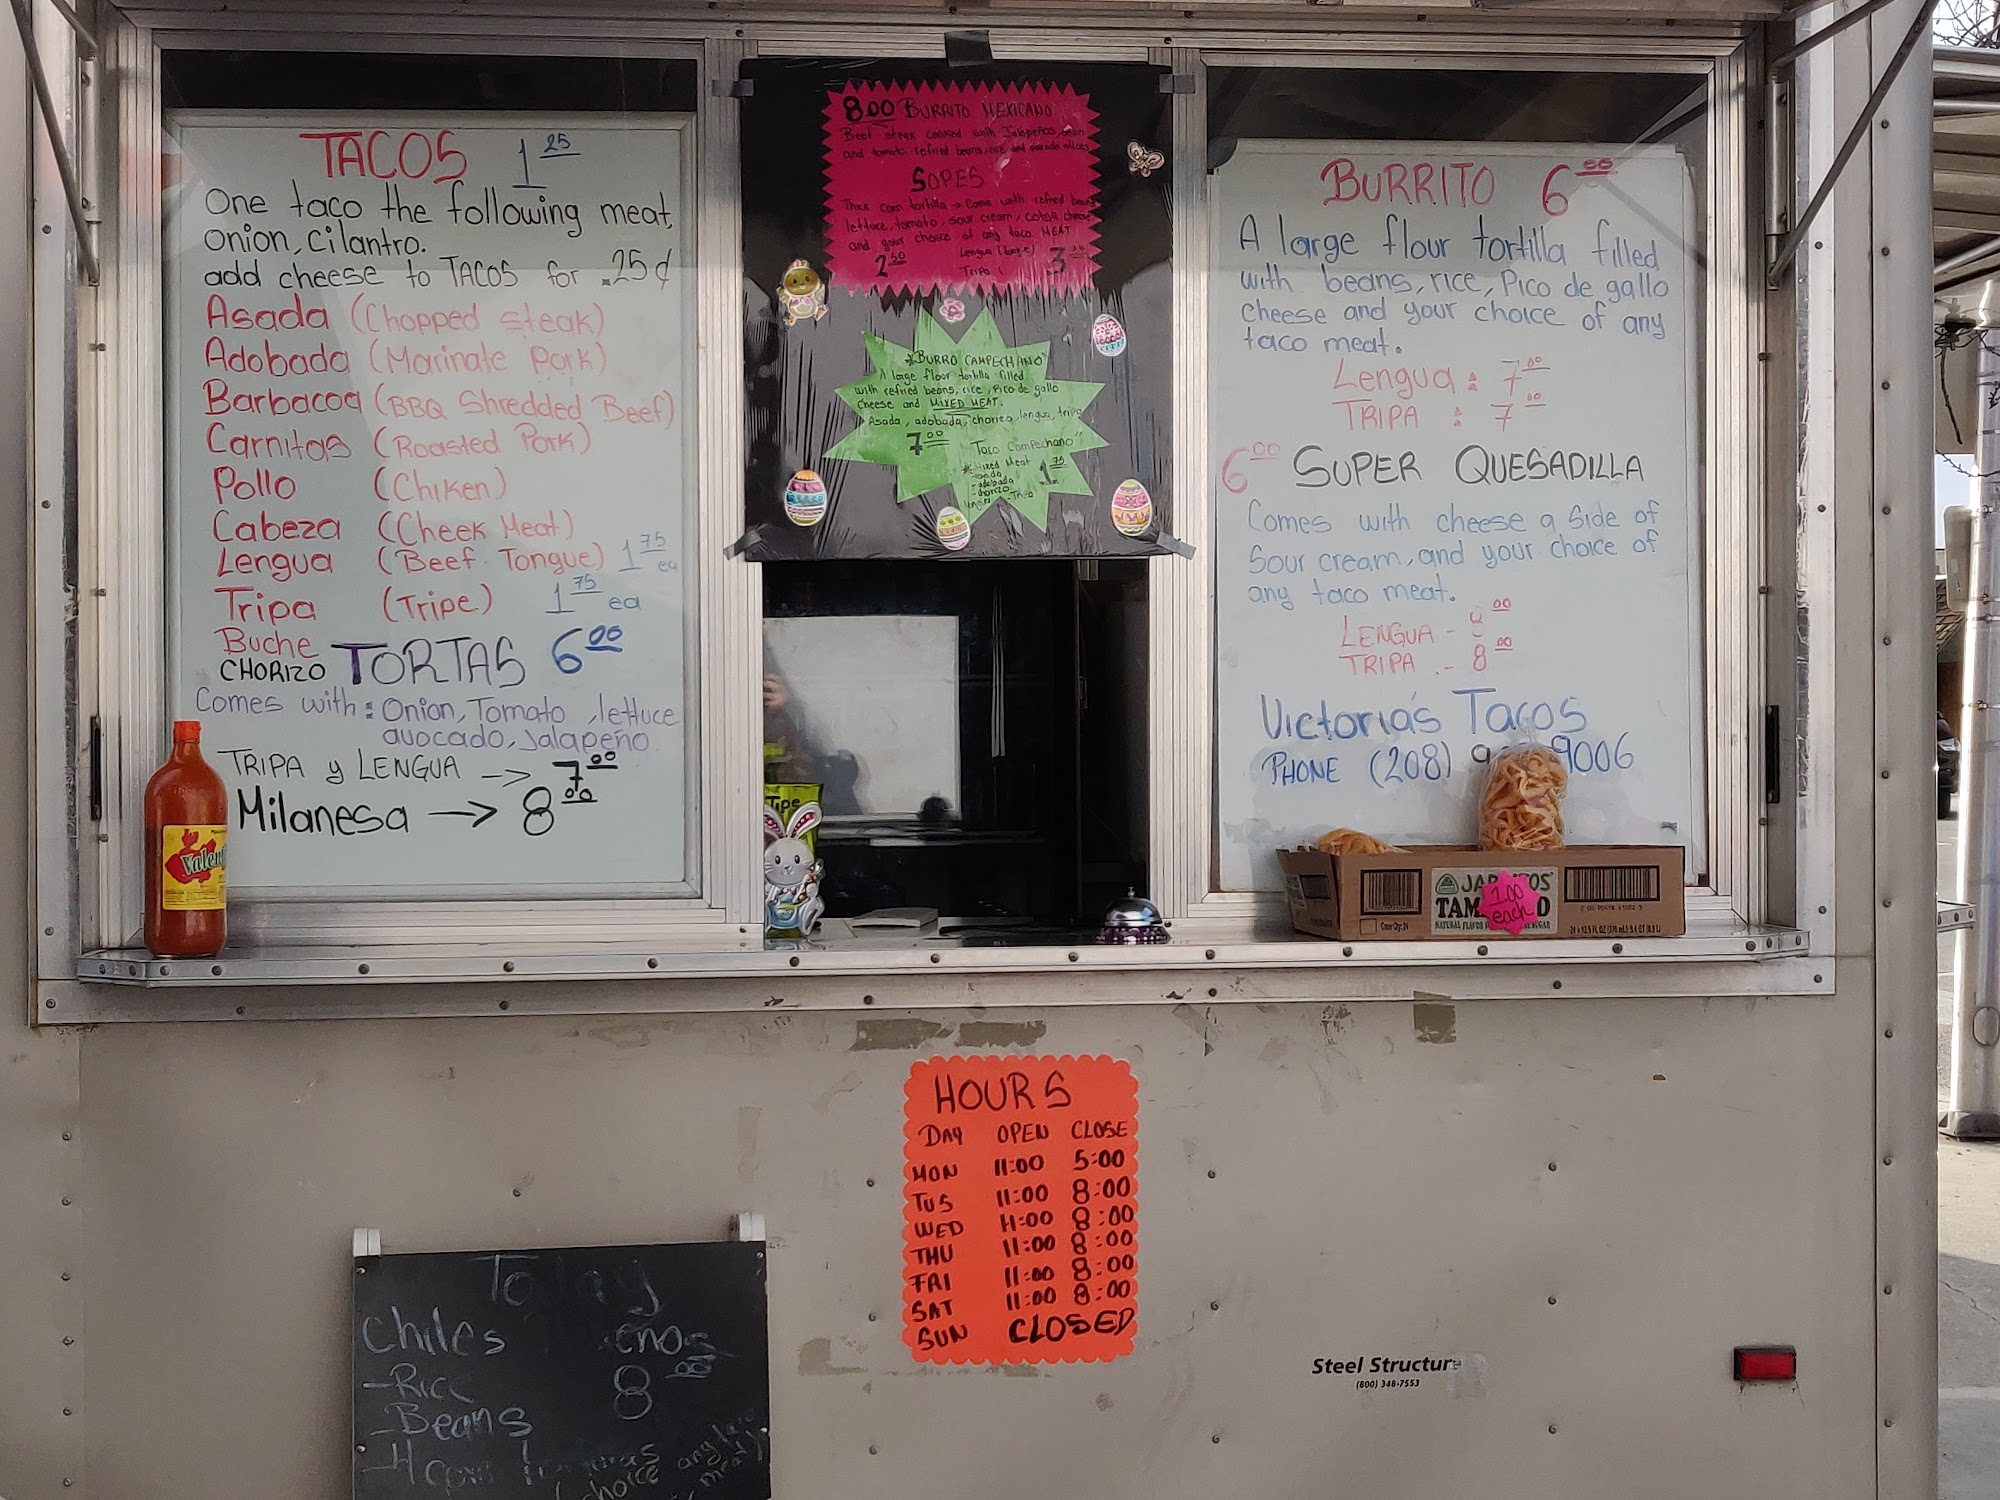 TACOS 1 25
One taco the following meat,
onion, cilantro.
add cheese to TACOS for .25¢
Asada (Chopped steak)
Adobada (Marinate Pork)
Barbacoa (BBQ Shredded Beef)
Carnitas (Roasted Pork)
Pollo (Chiken)
Cabeza (Cheek Meat)
Lengua (Beef Tongue) 1 75 ea
Tripa (Tripe) 1 75 ea
Buche
CHORIZO TORTAS 6 00
Comes with: Onion, Tomato, lettuce
avocado, Jalapeño
TRIPA y LENGUA -> 7 00
Milanesa -> 8 00
8.00 BURRITO MEXICANO
Beef steak cooked with Jalapeños, onion
and tomato, refried beans, rice and avocado slices
SOPES
Thick corn tortilla Come with refried beans
lettuce, tomato, sour cream, cotija cheese
and your choice of any taco MEAT
2 50 Lengua 3
Tripa
*BURRO CAMPECHANO"
A large flour tortilla filled
with refried beans, rice, Pico de gallo
Cheese and MIXED MEAT.
Asada, adobada, chorizo, lengua, tripa
7 00 "Taco Campechano"
*Mixed Meat 1 75
-asada
-adobada
-chorizo
lengua -Tripa
BURRITO 6
A large flour tortilla filled
with beans, rice, Pico de gallo
cheese and your choice of any
taco meat.
Lengua : 7 00
TRIPA : 7 00
6 00 SUPER QUESADILLA
Comes with cheese a side of
Sour cream, and your choice of
any taco meat.
LENGUA - 8 00
TRIPA - 8 00
Victoria's Tacos
PHONE (208) 9 9006
1.00
each
24 - 12.5 FL OZ (370 mL)
HOURS
DAY OPEN CLOSE
MON 11:00 5:00
TUS 11:00 8:00
WED 11:00 8:00
THU 11:00 8:00
FRI 11:00 8:00
SAT 11:00 8:00
SUN CLOSED
Today
Chiles
-Rice 8
-Beans
choice any
meat)
Steel Structure
(800) 348-7553